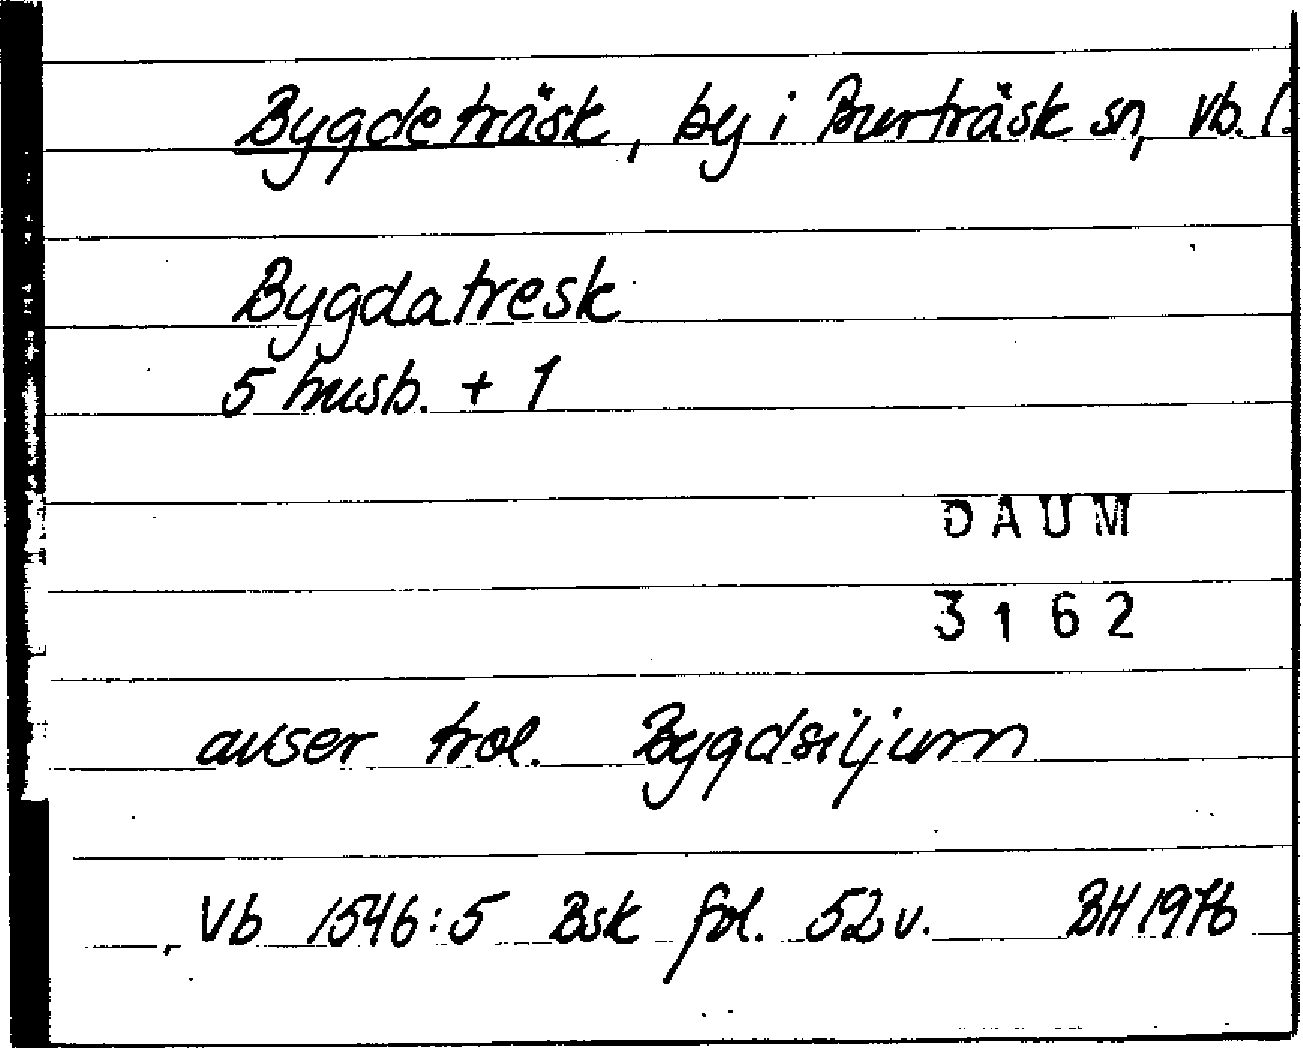 Bygdeträsk, by i Burträsk sn, Vb. (
Bygdatresk
5 husb. + 1
DAUM
3162
avser trol. Bygdsiljum
Vb 1546:5 Bsk fol. 52v. BH 1976